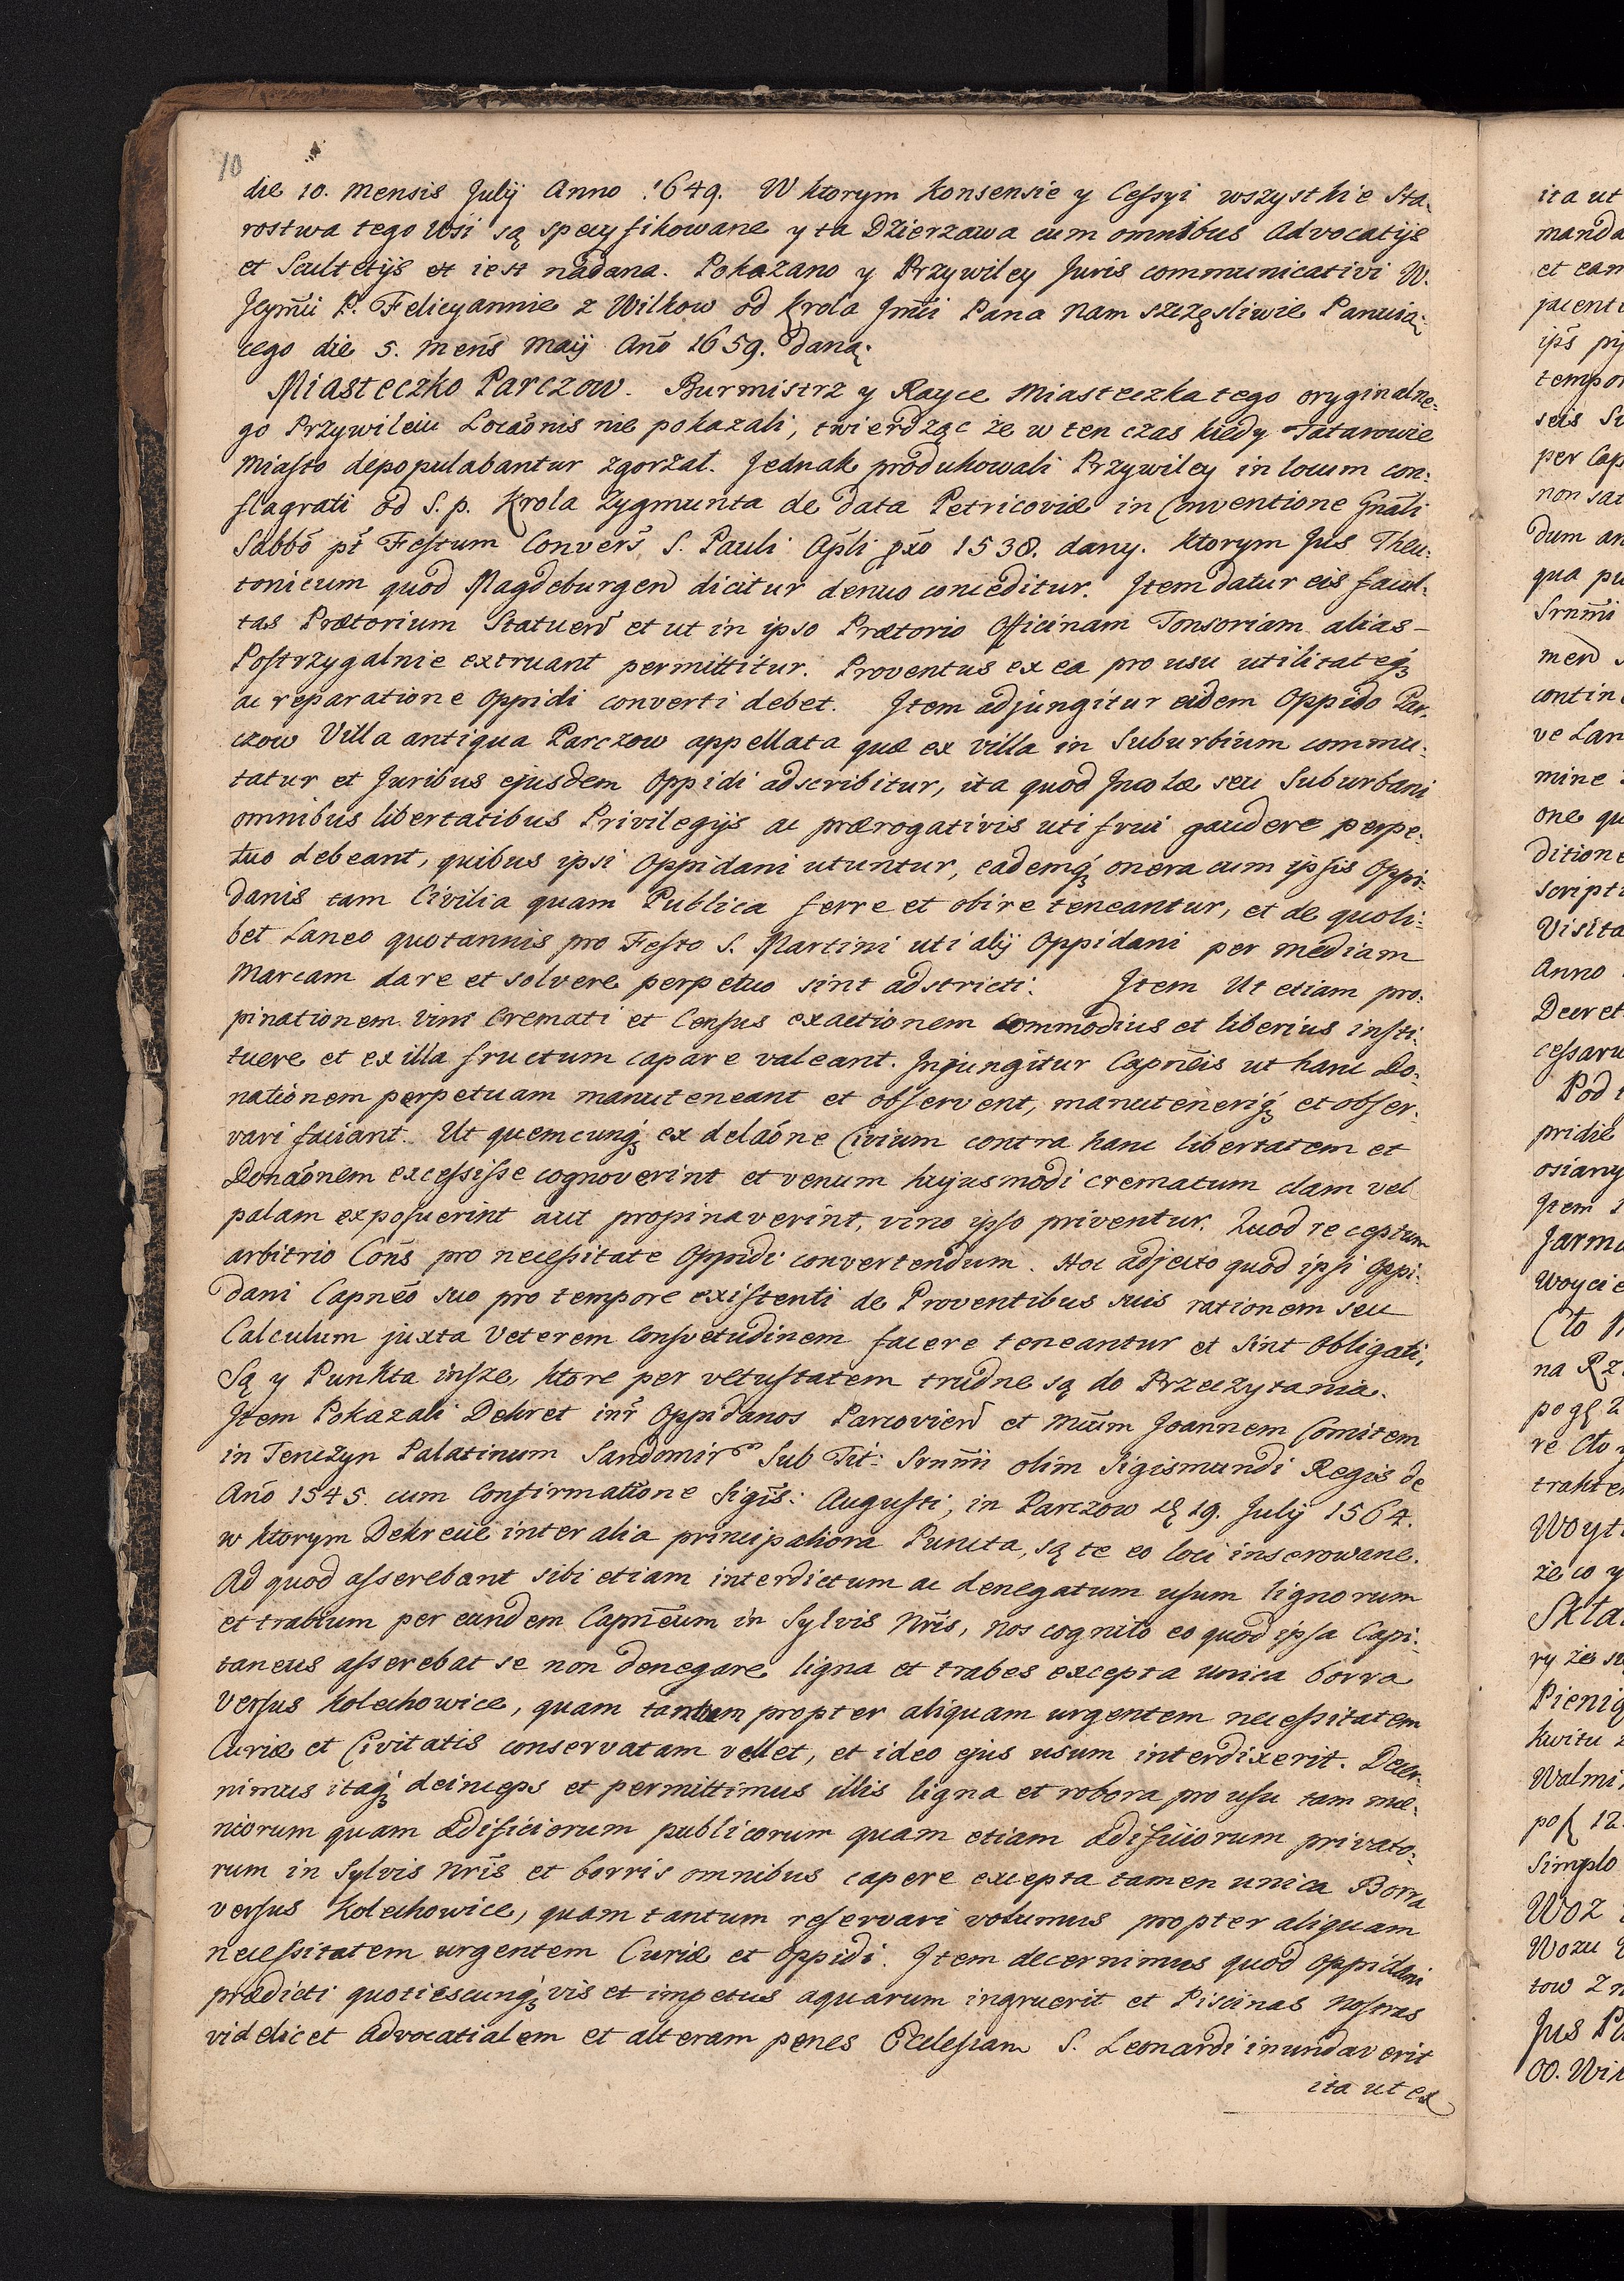 10
die 10. Mensis Julÿ Anno 1649. W ktorym Konsensie y Cessyi wszystkie Sta-
rostwa tego Wsi są specyfikowane y ta Dzierzawa cum omnibus Advocatÿs
et Scultetÿs et iest nadana. Pokazano y Przywiley Juris communicativi W.
Jeym̃ci P. Felicyannie z Wilkow od Krola Jm̃ci Pana Nam szczęsliwie Panuią-
cego die 5. Meñs Maÿ Año 1659. daną.
Miasteczko Parczow. Burmistrz y Rayce Miasteczka tego oryginalne-
go Przywileiu Locaõnis nie pokazali, twierdząc że w ten czas kiedy Tatarowie
Miasto depopulabantur zgorzał. Jednak produkowali Przywiley in locum con-
flagrati od S. p. Krola Zygmunta de data Petricoviæ in Conventione Gñali
Sabbõ pt̃ Festum Convers̃ S. Pauli Apl̃i pxõ 1538. dany. Ktorym Jus Theu-
tonicum quod Magdeburgen dicitur denuo conceditur. Item datur eis facul-
tas Prætorium Statuend et ut in ipso Prætorio Officinam Tonsoriam alias
Postrzygalnie extruant permittitur. Proventus ex ea pro usu utilitateq́ȝ
ac reparatione Oppidi converti debet. Item adjungitur eidem Oppido Par-
czow Villa antiqua Parczow appellata quæ ex villa in Suburbium commu-
tatur et Juribus ejusdem Oppidi adscribitur, ita quod Jncolæ seu Suburbani
omnibus libertatibus Privilegÿs ac prærogativis uti frui gaudere perpe-
tuo debeant, quibus ipsi Oppidani utuntur, eademq́ȝ onera cum ipsis Oppi-
danis tam Civilia quam Publica ferre et obire teneantur, et de quoli-
bet Laneo quotannis pro Festo S. Martini uti alÿ Oppidani per mediam
Marcam dare et solvere perpetuo sint adstricti. Item Ut etiam pro-
pinationem vini cremati et Census exactionem commodius et liberius insti-
tuere et ex illa fructum capare valeant. Injungitur Capnẽis ut hanc Do-
nationem perpetuam manuteneant et observent, manuteneriq́ȝ et obser-
vari faciant. Ut quemcunq́ȝ ex delaõne Civium contra hanc libertatem et
Donaõnem excessisse cognoverint et venum hujusmodi crematum clam vel
palam exposuerint aut propinaverint, vino ipso priventur. Quod receptum
arbitrio Coñs pro necessitate Oppidi convertendum. Hoc adjecto quod ipsi Oppi-
dani Capnẽo suo pro tempore existenti de Proventibus suis rationem seu
Calculum juxta Veterem Consvetudinem facere teneantur et Sint Obligati,
Są y Punkta insze, ktore per vetustatem trudne są do Przeczytania.
Item Pokazali Dekret int̃r Oppidanos Parcoviend et Mcum Joannem Comitem
in Tenczyn Palatinum Sandomirem Sub Tit: Srnm̃i olim Sigismundi Regis de
Año 1545. cum Confirmatiõne Sigis̃: Augusti, in Parczow 19. Julÿ 1564.
w ktorym Dekrecie inter alia principaliora Puncta, są te eo loci inserowane.
Ad quod asserebant sibi etiam interdictum ac denegatum usum lignorum
et trabium per eundem Capnẽum in Sylvis Nrĩs, Nos cognito eo quod ipsa Capi-
taneus asserebat se non denegare ligna et trabes excepta unica borra
Versus Kolechowice, quam tantum propter aliquam urgentem necessitatem
Curiæ et Civitatis conservatam vellet, et ideo ejus usum interdixerit. Decer-
nimus itaq́ȝ deinceps et permittimus illis ligna et robora pro usu tam mœ-
niorum quam ædificiorum publicorum quam etiam ædificiorum privato-
rum in Sylvis Nrĩs et borris omnibus capere excepta tamen unica Borra
versus Kolechowice, quam tantum reservari volumus propter aliquam
necessitatem urgentem Curiæ et Oppidi. Item decernimus quod Oppidani
prædicti quotiescunq́ȝ vis et impetus aquarum ingruerit et Piscinas Nostras
videlicet Advocatialem et alteram penes Ecclesiam S. Leonardi inundaverit
ita ut ex